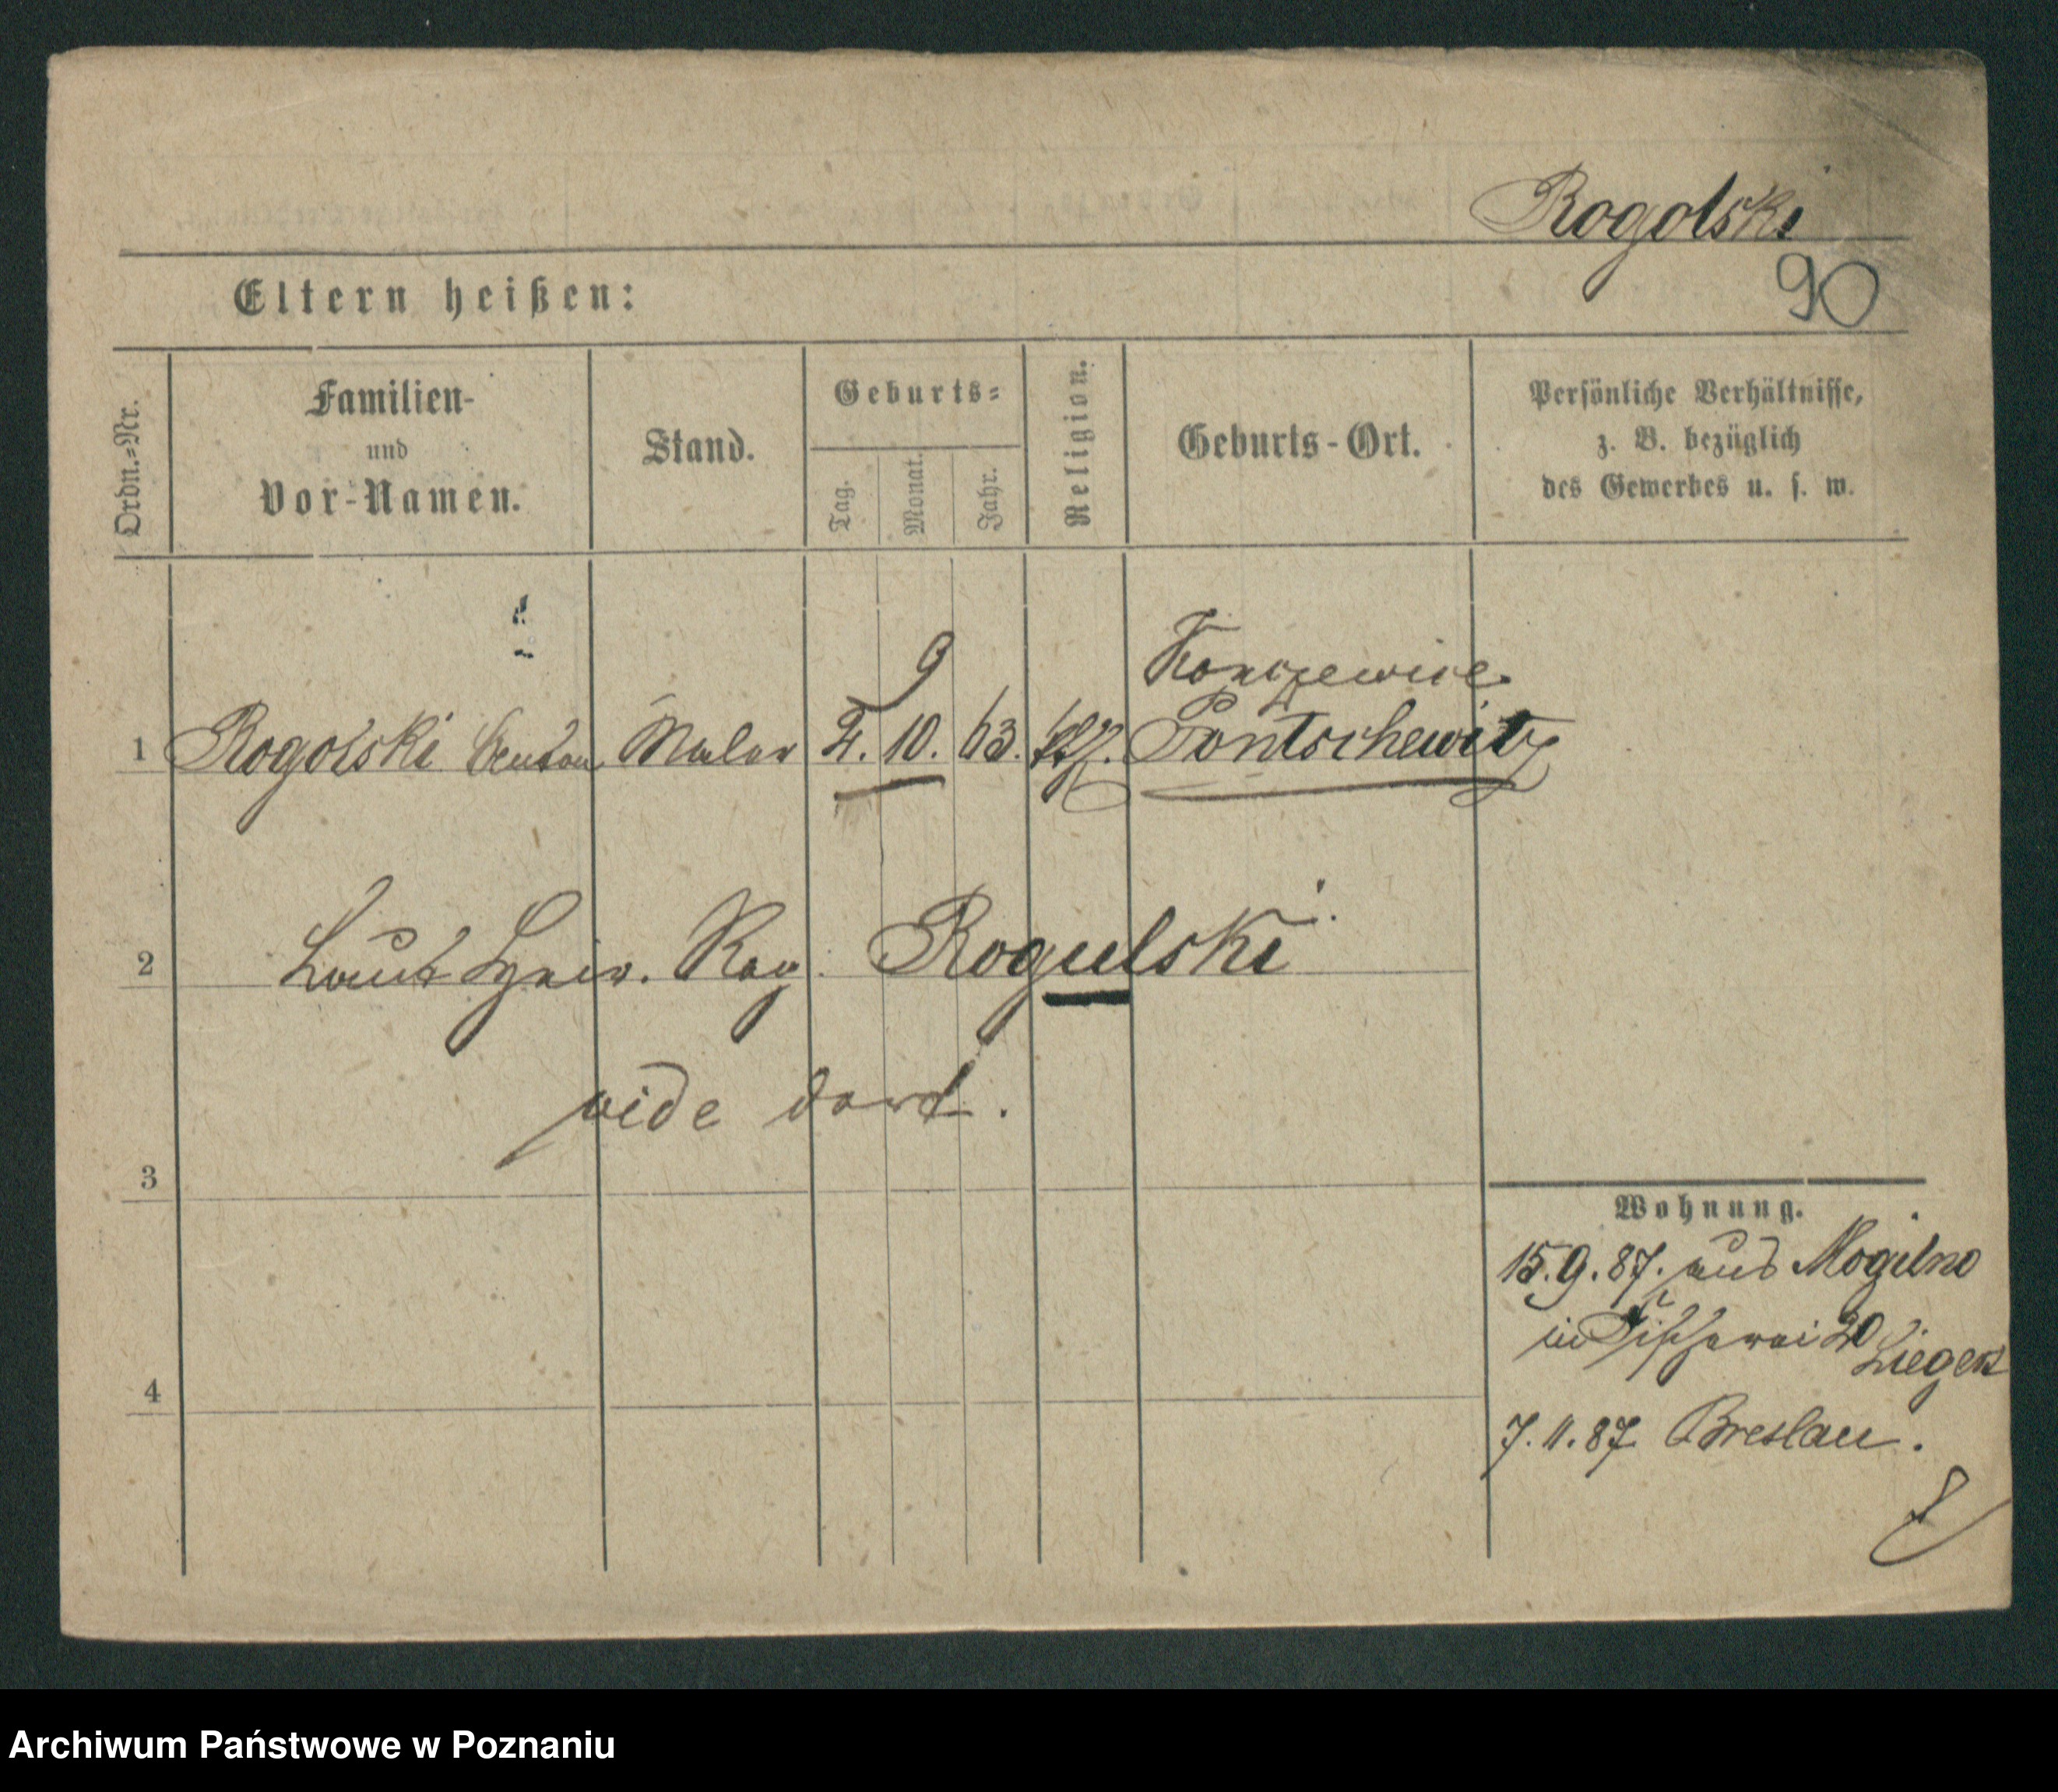 Rogolski
90
Eltern heißen:
Ordn.-Nr.
Familien-
und
Vor-Namen.
Stand.
Geburts-
Tag.
Monat.
Jahr.
Religion.
Geburts-Ort.
Persönliche Verhältnisse,
z. B. bezüglich
des Gewerbes u. s. w.
9
1 Rogolski Maler 2. 10. 63. Pontschewitz
2 Laut Reg. Rogulski
vide dort.
3
4
Wohnung.
15.9.87. aus Mogilno
in Fischerei 20
7.11.87 Breslau.
Archiwum Państwowe w Poznaniu